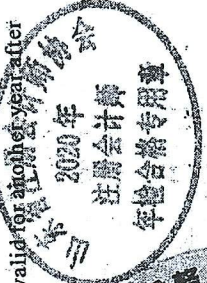 valid for another year after
注册会计师协会
2020年
注册会计师
年检合格专用章